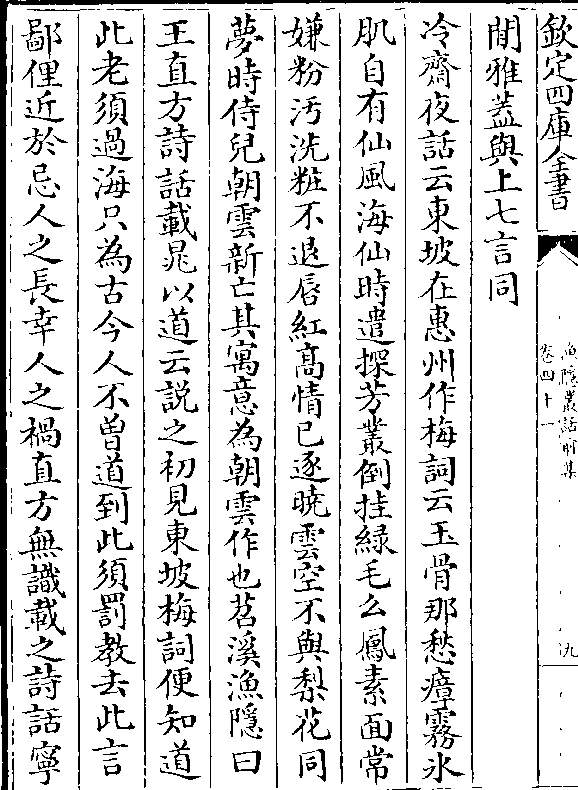 欽定四庫全書
漁隱叢話前集
卷四十一
九
閒雅蓋與上七言同
冷齋夜話云東坡在惠州作梅詞云玉骨那愁瘴霧氷
肌自有仙風海仙時遣探芳叢倒挂緑毛么鳳素面常
嫌粉汚洗粧不退唇紅髙情已逐曉雲空不與梨花同
夢時侍兒朝雲新亡其寓意為朝雲作也苕溪漁隱曰
王直方詩話載晁以道云説之初見東坡梅詞便知道
此老須過海只為古今人不曾道到此須罰教去此言
鄙俚近於忌人之長幸人之禍直方無識載之詩話寧